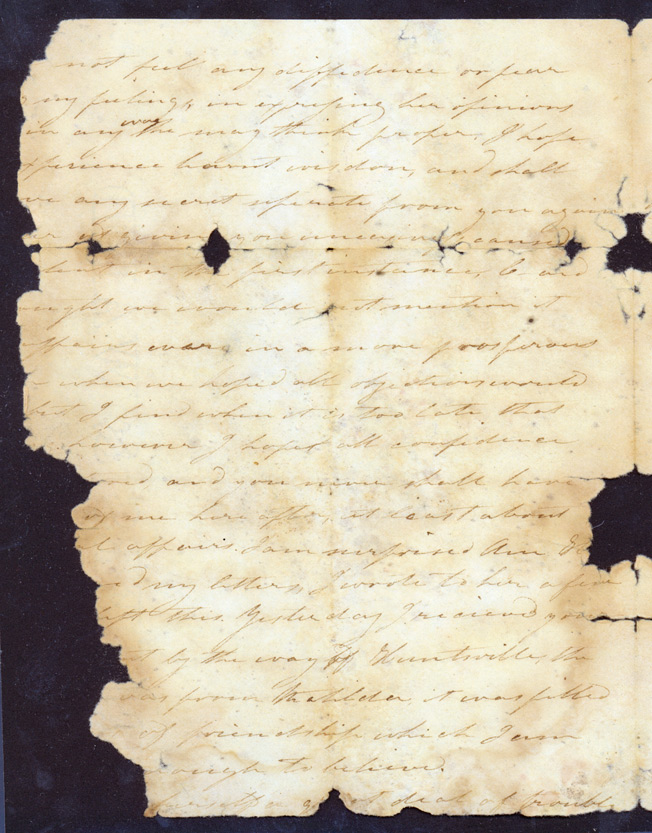 not feel any diffidence or fear
my feelings, in expressing her opinions
in any way she may think proper, I hope
experience learnt wisdom, and shall
any secret seperate from you again
giving you uneasiness
but in the first instance,
we would not mention it
affairs were in a more prosperous
when we hoped all objections would
but I find when it is too late that
however I hope all confidence
and you never shall have
of me here after, at least about
affairs. I am surprised Am
my letters, I wrote to her a few
left this. Yesterday I recieved your
by the way of Huntsville, the
was from Mathilda, it was filled
of friendship which I am
enough to believe.
a great deal of trouble